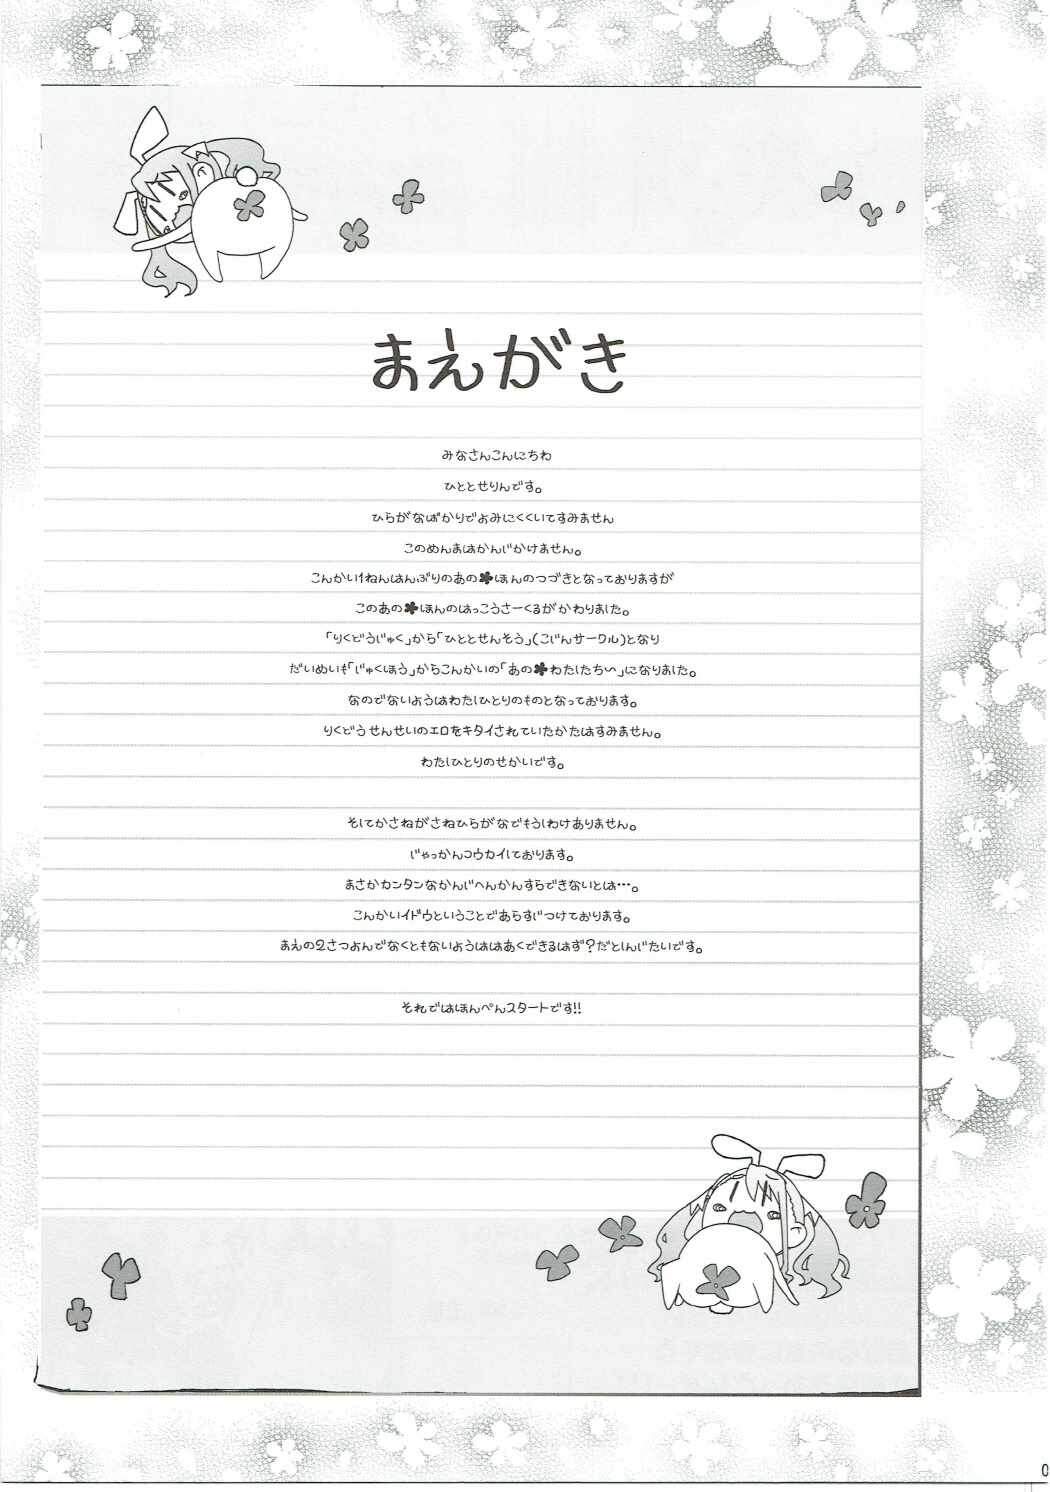 まえがき
みなさんこんにちわ
ひととせりんです。
ひらがなばかりでよみにくくいてすみません
このめんまはかんじかけません。
こんかい1ねんはんぶりのあの✽ほんのつづきとなっておりますが
このあの✽ほんのはっこうさーくるがかわりました。
「りくどうじゅく」から「ひととせんそう」(こじんサークル)となり
だいめいも「じゅくほう」からこんかいの「あの✽わたしたち〜」になりました。
なのでないようはわたしひとりのものとなっております。
りくどうせんせいのエロをキタイされていたかたはすみません。
わたしひとりのせかいです。
そしてかさねがさねひらがなでもうしわけありません。
じゃっかんコウカイしております。
まさかカンタンなかんじへんかんすらできないとは…。
こんかいイドウということであらすじつけております。
まえの2さつよんでなくともないようははあくできるはず?だとしんじたいです。
それではほんぺんスタートです!!
0